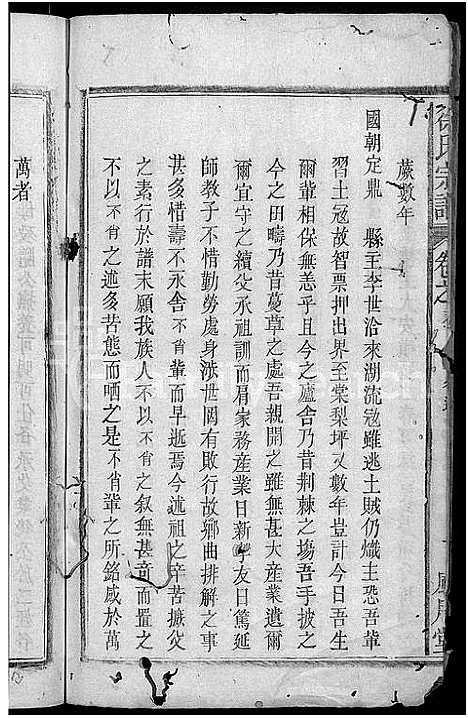 蕨數年
國朝定鼎　縣主李世洽來湖流冦雖逃土賊仍熾主恐吾輩
習土冦故智票押出界至棠梨坪又數年豈計今日吾生
爾輩相保無恙乎且今之廬舎乃昔荆棘之塲吾手披之
今之田疇乃昔蔓草之處吾親開之雖無甚大産業遺爾
爾宜守之續父承祖訓而肩家務産業日新孝友日篤延
師教子不惜勤勞處身涉世罔有敗行故鄉曲排解之事
甚多惜壽不永舎不肖輩而早逝焉今述祖之辛苦攄父
之素行於譜末願我族人不以不肖之叙無甚竒而置之
不以不肖之述多苦態而哂之是不肖輩之所銘感於萬
萬者
徐氏宗譜
卷之